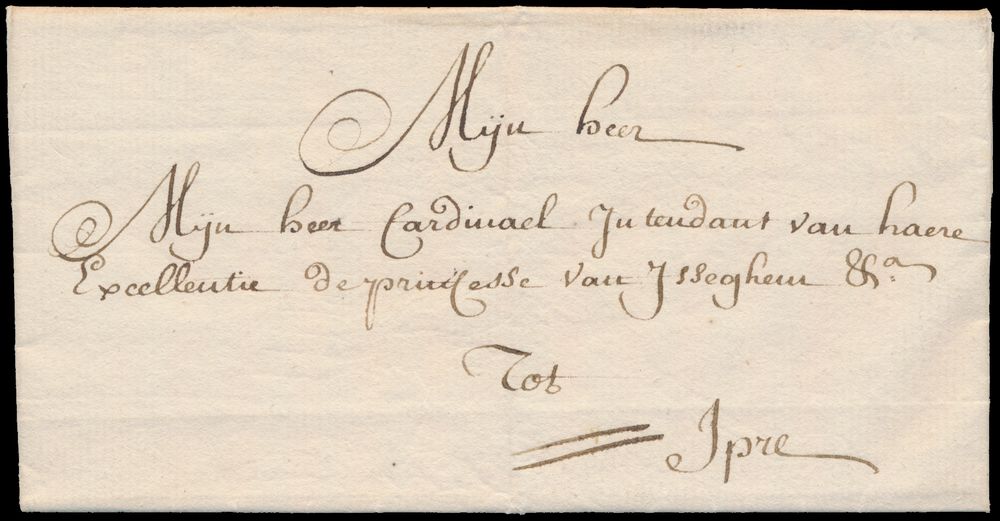 Mijn heer
Mijn heer Cardinael Intendant van haere
Excellentie de princesse van Isseghem &a
Tot
Ipre